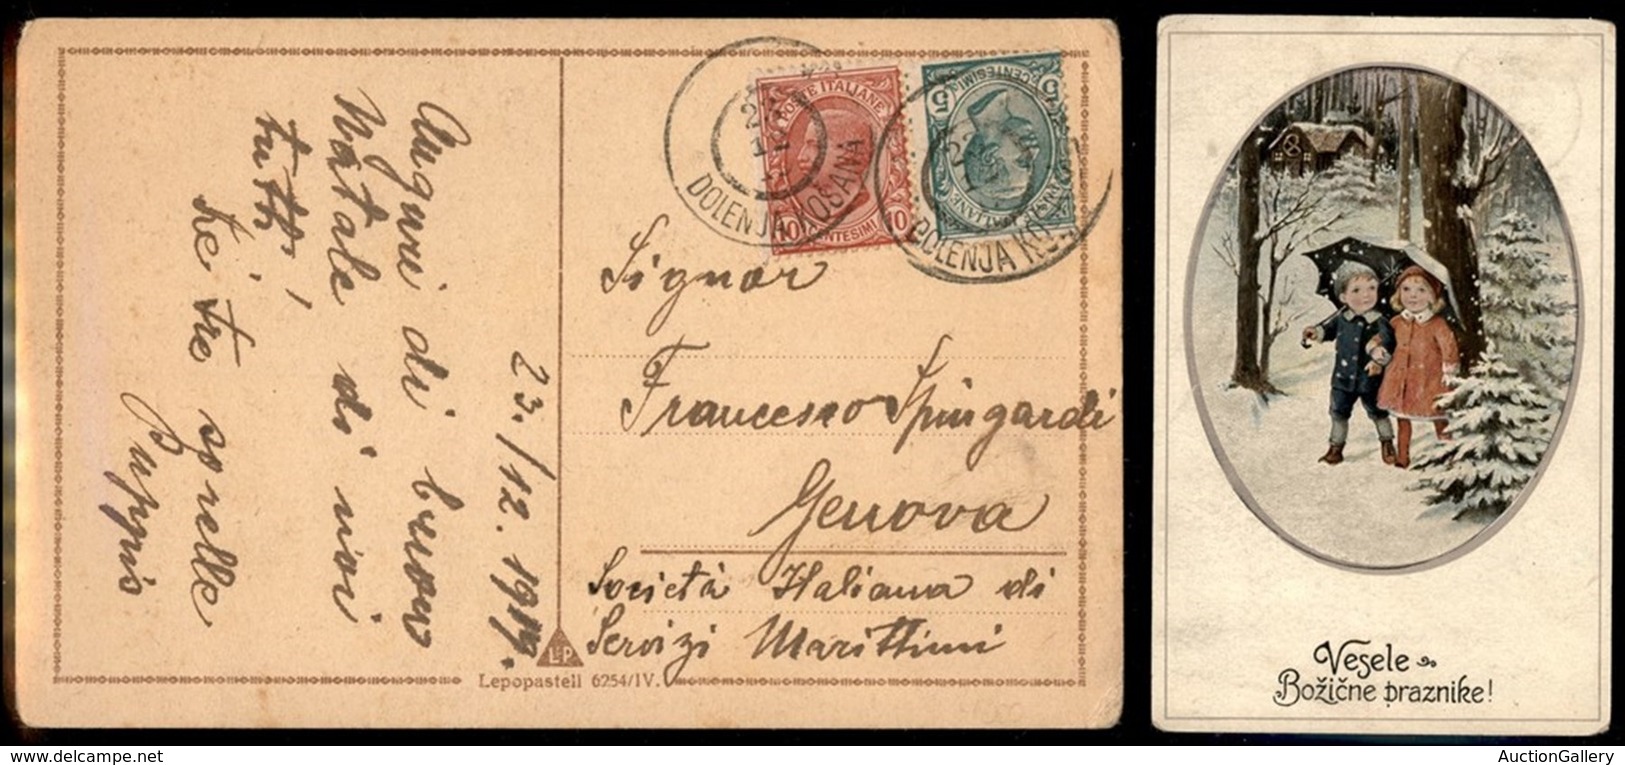 Auguri di buon
Natale di noi
tutti,
Le tre sorelle
Puppis
23./12. 1919.
POSTE ITALIANE
10 CENTESIMI 10
DOLENJA KOSANA
5 CENTESIMI 5
DOLENJA KOS
Signor
Francesco Spingardi
Genova
Società Italiana di
Servizi Marittimi
LP
Lepopastell 6254/IV.
Vesele
Božične praznike!
AuctionGallery